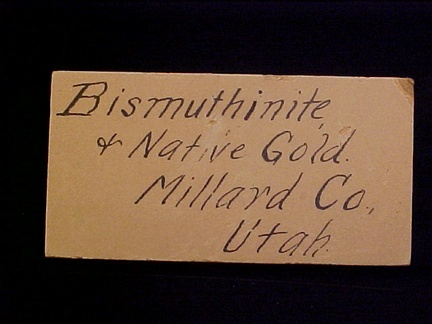 Bismuthinite
& Native Gold.
Millard Co.,
Utah